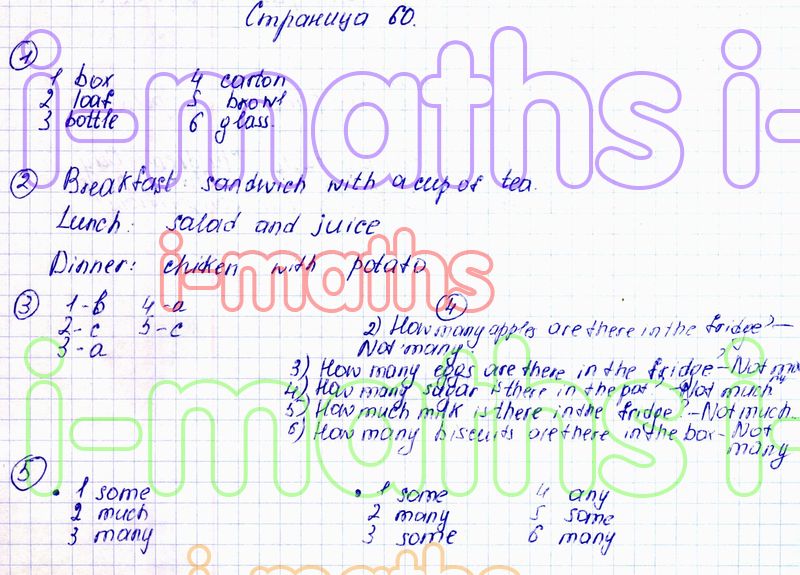 Страница 60.
1
1 box 4 carton
2 loaf 5 browl
3 bottle 6 glass.
2 Breakfast: sandwich with a cup of tea.
Lunch: salad and juice
Dinner: chicken with potato
i-maths i-
i-maths
3
1-b 4-a
2-c 5-c
3-a
4
2) How many apples are there in the fridge? –
Not many
3) How many eggs are there in the fridge? – Not many
4) How many sugar is there in the pot? – Not much
5) How much milk is there in the fridge? – Not much.
6) How many biscuits are there in the box – Not
many
i-maths i-
5
• 1 some
2 much
3 many
• 1 some 4 any
2 many 5 some
3 some 6 many